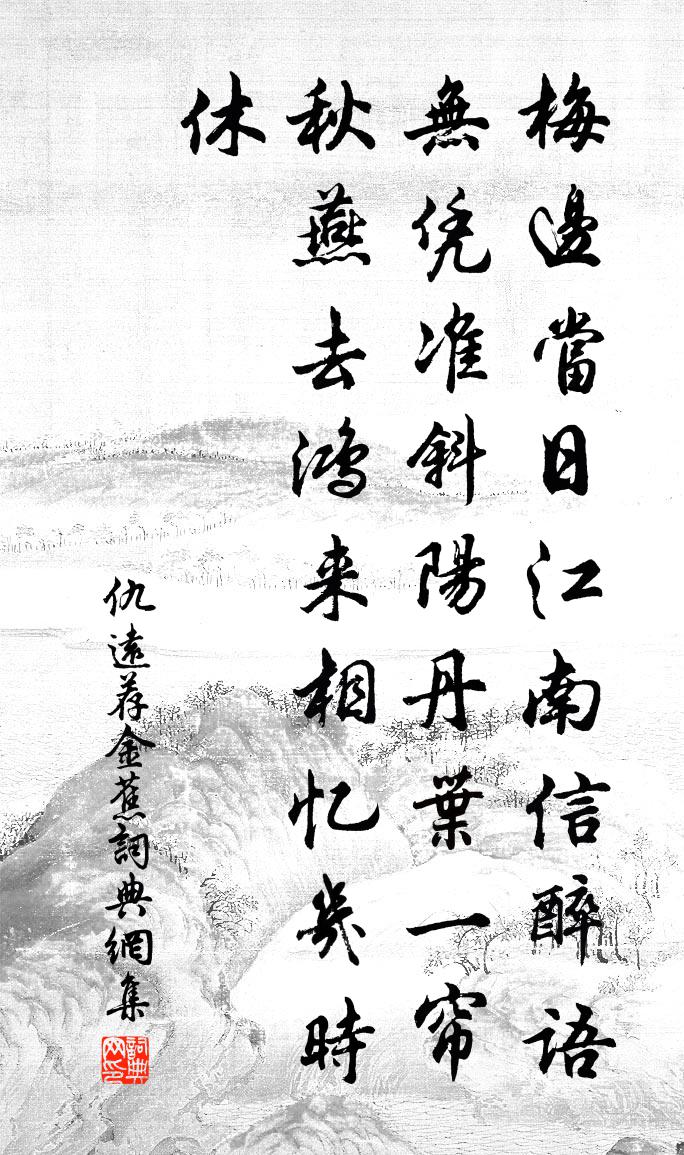 梅邊當日江南信醉語
無凭准斜陽丹葉一帘
秋燕去鴻来相忆幾時
休
仇遠荐金蕉詞典網集
詞典网印